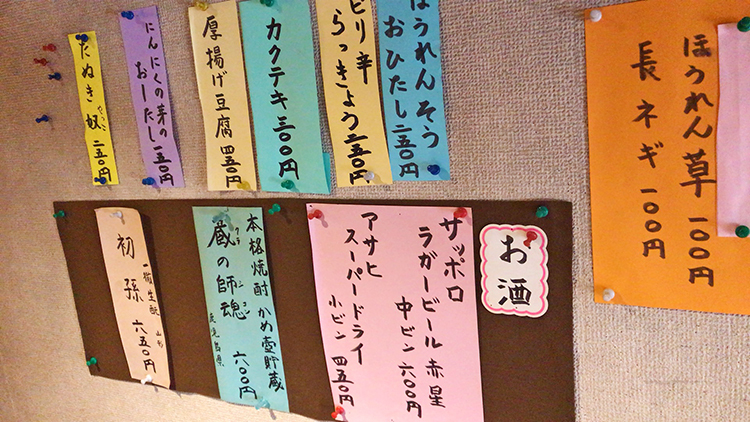 ほうれん草 一〇〇円
長ネギ 一〇〇円
ほうれんそう
おひたし 二五〇円
ピリ辛
らっきょう 二五〇円
カクテキ 三〇〇円
厚揚げ豆腐 四五〇円
にんにくの芽の
おしたし 一五〇円
たぬき奴 二五〇円
やっこ
お酒
サッポロ
ラガービール 赤星
中ビン 六〇〇円
アサヒ
スーパードライ
小ビン 四五〇円
本格焼酎 かめ壺貯蔵
蔵の師魂 六〇〇円
初孫 六五〇円
生酛 山形